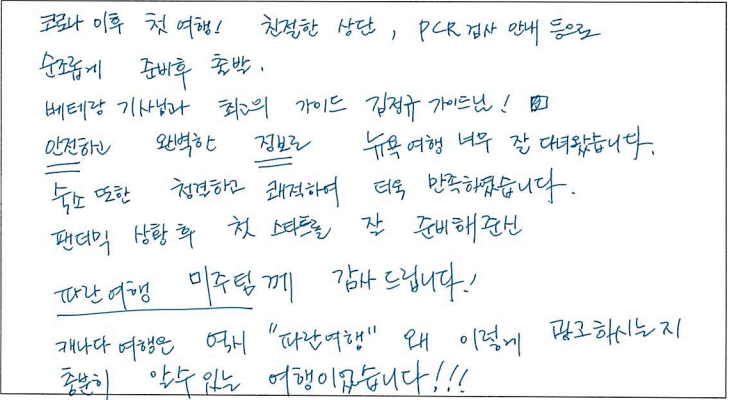 코로나 이후 첫 여행! 친절한 상담, PCR 검사 안내 등으로
순조롭게 준비후 출발.
베테랑 기사님과 최고의 가이드 김정규 가이드님!
안전하고 완벽한 정보로 뉴욕여행 너무 잘 다녀왔습니다.
숙소 또한 청결하고 쾌적하여 더욱 만족하였습니다.
팬더믹 상황 후 첫 스타트를 잘 준비해준신
파란여행 미주팀께 감사드립니다!
캐나다 여행은 역시 "파란여행" 왜 이렇게 광고하시는지
충분히 알수 있는 여행이었습니다!!!